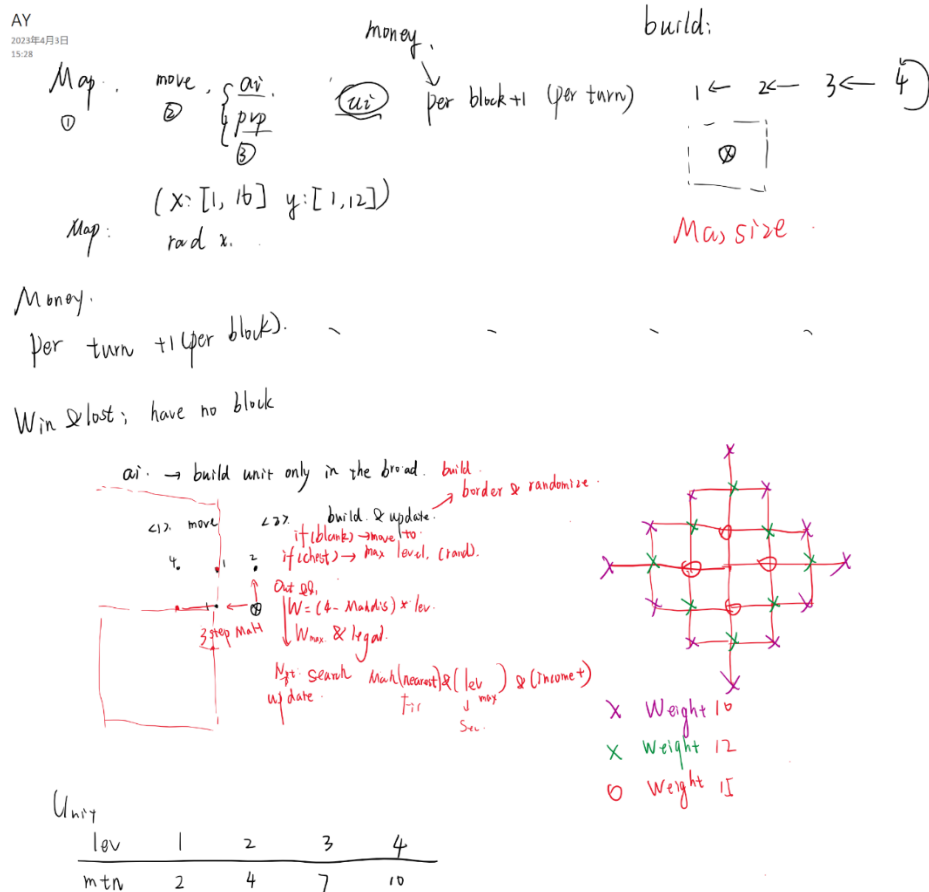 AY
2023年4月3日
15:28
money.
build:
Map. move. { ai.
pvp
ui
per block+1 (per turn)
1 ← 2 ← 3 ← 4
① ② ③
(x:[1, 16] y:[1,12])
Map: rad x.
Max size
Money.
Per turn +1 (per block).
Win & lost; have no block
ai. → build unit only in the broad. build.
border & randomize.
<1>. move <2>. build & update.
if(blank) → move to
if(chest) → max level. (rand).
4. 1 2
W= (4- Mahdis) * lev.
3 step MaH
Wmax. & legal.
search Mah(nearest)&(lev max) & (income+)
update. Fir Sec.
X Weight 10
X Weight 12
O Weight 15
Unit
lev 1 2 3 4
mtn 2 4 7 10